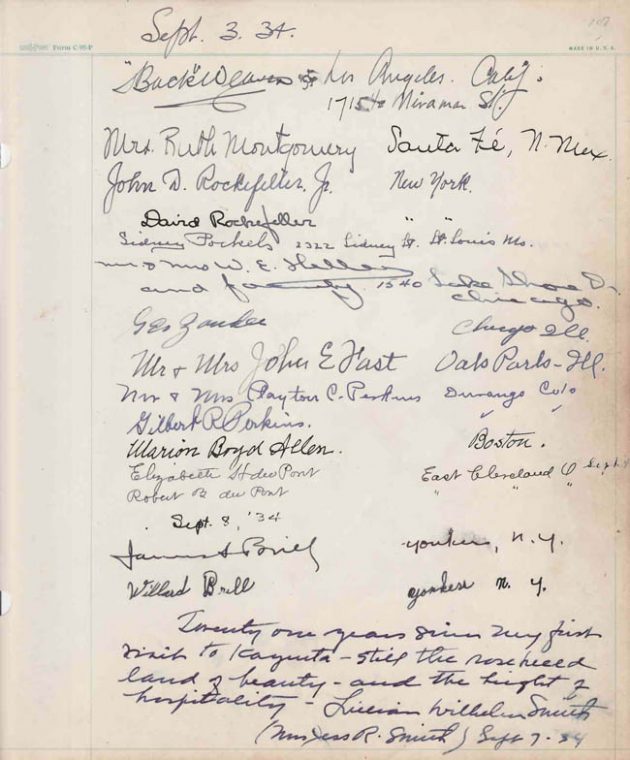 Sept. 3. 34.
Form C-95-P
MADE IN U.S.A.
"Back" Weaver Los Angeles. Calif.
1715½ Miramar St.
Mrs. Ruth Montgomery Santa Fé, N. Mex.
John D. Rockefeller, Jr. New York.
David Rockefeller " "
Sidney Pockels 2322 Sidney St. St. Louis Mo.
Mr & Mrs W. E. Heller
and family 1540 Lake Shore Dr.
Chicago.
Geo Zanker Chicago Ill.
Mr & Mrs John E Fast Oak Park - Ill.
Mr & Mrs Clayton C. Perkins Durango Colo
Gilbert R. Perkins. " "
Marion Boyd Allen. Boston.
Elizabeth H du Pont East Cleveland O Sept
Robert R du Pont " " "
Sept. 8, '34
James S Brill Yonkers, N. Y.
Willard Brill Yonkers N. Y.
Twenty one years since my first
visit to Kayenta - still the
land of beauty - and the height of
hospitality - Lillian Wilhelm Smith
(Mrs Jess R. Smith) Sept 7 - 34